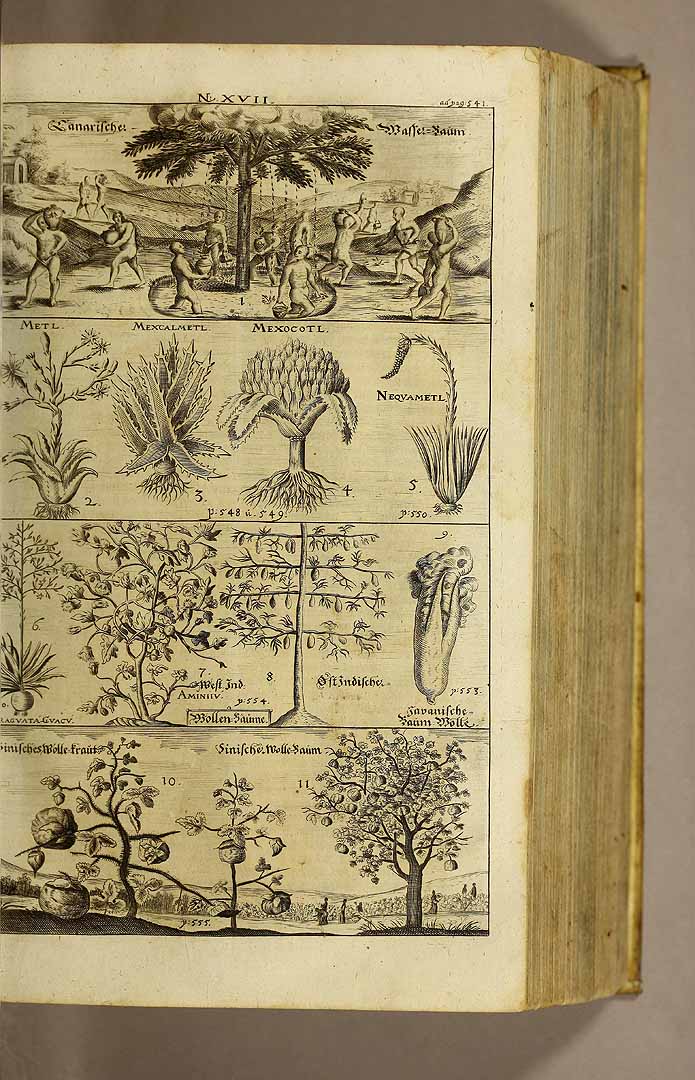 No. XVII.
ad pag: 541.
Canarischer Wasser=Baum
1.
METL. MEXCALMETL. MEXOCOTL.
NEQVAMETL
2. 3. 4. 5.
p: 548 ú. 549. p: 550.
6.
9.
7 8
West Ind. Ost Indische.
AMINIIV.
p: 554.
Wollen Bäume.
p: 553.
RAGVATA GVACV.
Javanische
Baum Wolle
Sinisches Wolle kraut Sinische Wolle Baum
10. 11
p: 555.